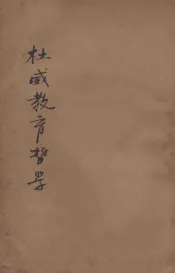 杜威教育哲学